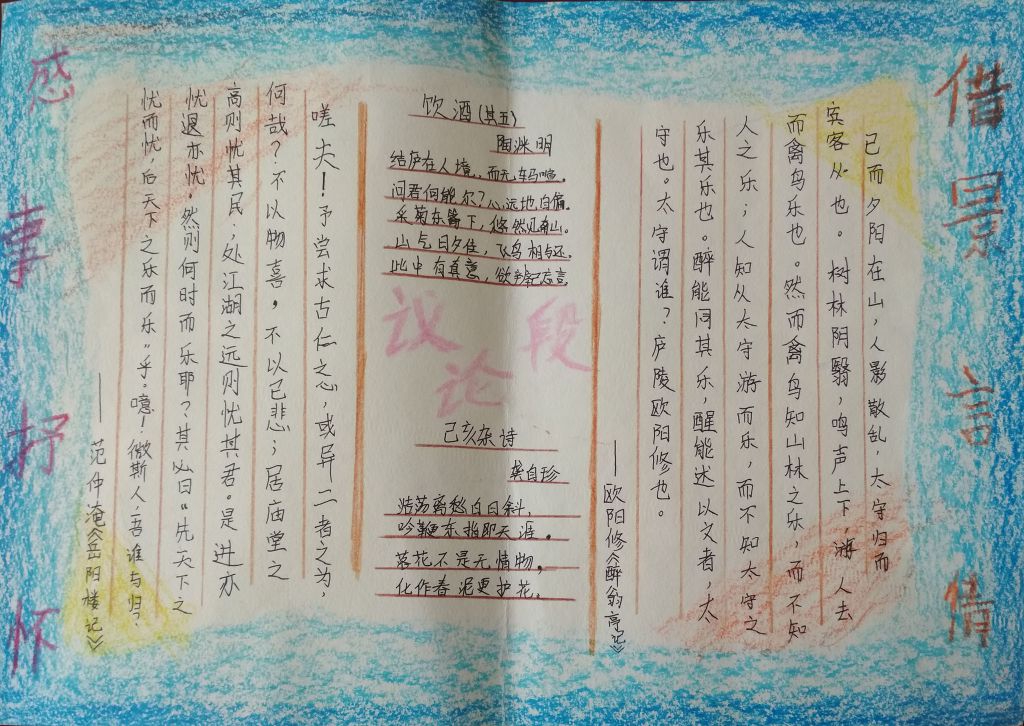 借景言情
已而夕阳在山，人影散乱，太守归而
宾客从也。树林阴翳，鸣声上下，游人去
而禽鸟乐也。然而禽鸟知山林之乐，而不知
人之乐；人知从太守游而乐，而不知太守之
乐其乐也。醉能同其乐，醒能述以文者，太
守也。太守谓谁？庐陵欧阳修也。
——欧阳修《醉翁亭记》
饮酒(其五)
陶渊明
结庐在人境，而无车马喧。
问君何能尔？心远地自偏。
采菊东篱下，悠然见南山。
山气日夕佳，飞鸟相与还。
此中有真意，欲辨已忘言。
议论段
己亥杂诗
龚自珍
浩荡离愁白日斜，
吟鞭东指即天涯。
落花不是无情物，
化作春泥更护花。
嗟夫！予尝求古仁之心，或异二者之为，
何哉？不以物喜，不以己悲；居庙堂之
高则忧其民；处江湖之远则忧其君。是进亦
忧退亦忧。然则何时而乐耶？其必曰“先天下之
忧而忧，后天下之乐而乐”乎。噫！微斯人，吾谁与归？
——范仲淹《岳阳楼记》
感事抒怀